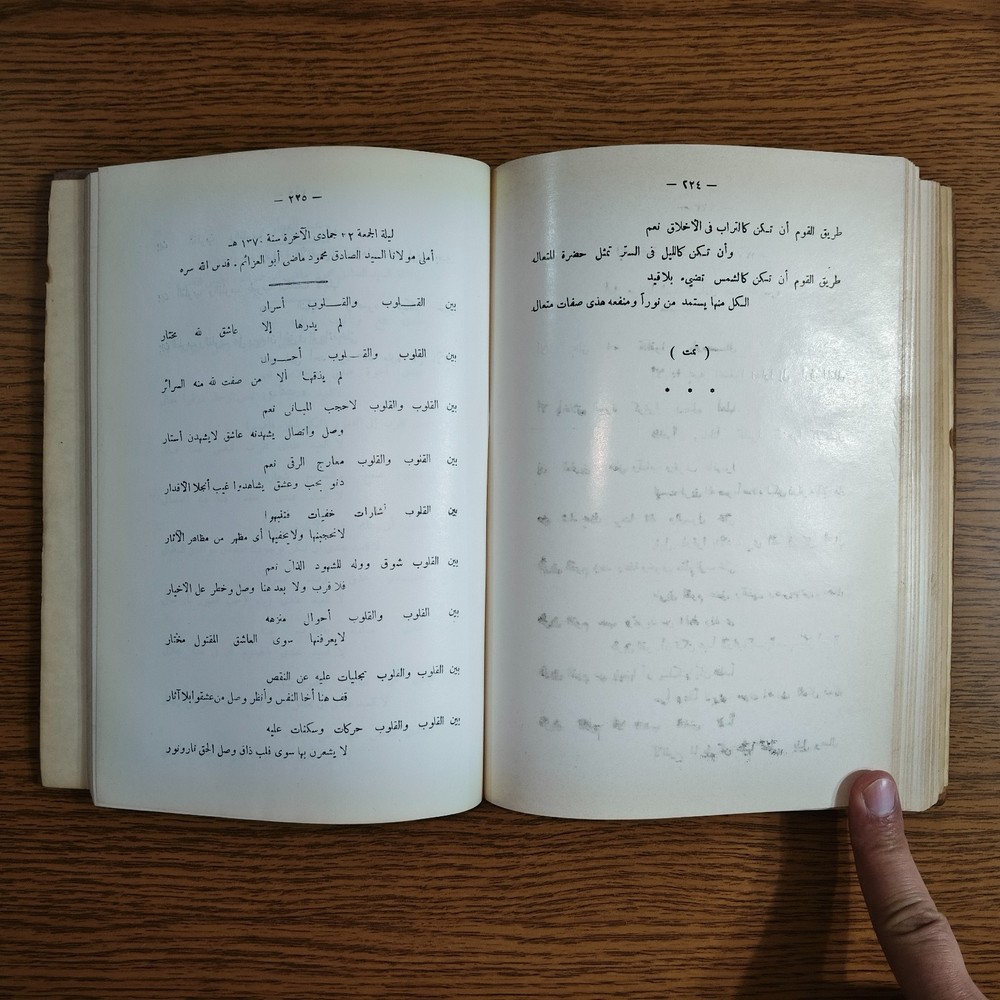 — ٢٢٤ —
طريق القوم أن تسكن كالتراب فى الأخلاق نعم
وأن تسكن كالليل فى الستر تمثل حضرة المتعال
طريق القوم أن تسكن كالشمس تضيء بلاقيد
الكل منها يستمد من نوراً ومنفعه هذى صفات متعال
( تمت )
• • •
— ٢٢٥ —
ليلة الجمعة ٢٢ جمادى الآخرة سنة ١٣٧٠ هـ
أملى مولانا السيد الصادق محمود ماضى أبو العزائم . قدس الله سره
بين القلوب والقلوب أسرار
لم يدرها إلا عاشق لله مختار
بين القلوب والقلوب أحوال
لم يذقها ألا من صفت لله منه السرائر
بين القلوب والقلوب لاحجب المبانى نعم
وصل واتصال يشهدنه عاشق لايشهدن أستار
بين القلوب والقلوب معارج الرقى نعم
دنو بحب وعشق يشاهدوا غيب أنجلا الاقدار
بين القلوب أشارات خفيات
لاتحجبنها ولايخفيها أى مظهر من مظاهر الآثار
بين القلوب شوق ووله للشهود الذات نعم
فلا قرب ولا بعد هنا وصل وخطر عل الاخيار
بين القلوب والقلوب أحوال منزهه
لايعرفنها سوى العاشق المقتول مختار
بين القلوب والقلوب تجليات عليه عن النقص
قف هنا أخا النفس وأنظر وصل من عشقوابلاآثار
بين القلوب والقلوب حركات وسكنات عليه
لا يشعرن بها سوى قلب ذاق وصل الحق نارونور